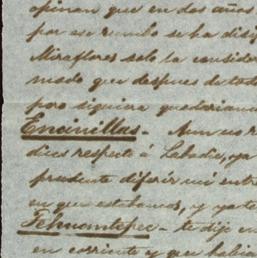 opinan que en dos años
por ese rumbo se ha disi
Miraflores solo la consider
modo que despues de todo
poro siguiera quedariamo
Encinillas - Aun no r
dices respecto á Labadie, ya
prudente diferir mi entre
en que estabamos, y ya te
Tehuantepec - te dije en
en corriente y que habia